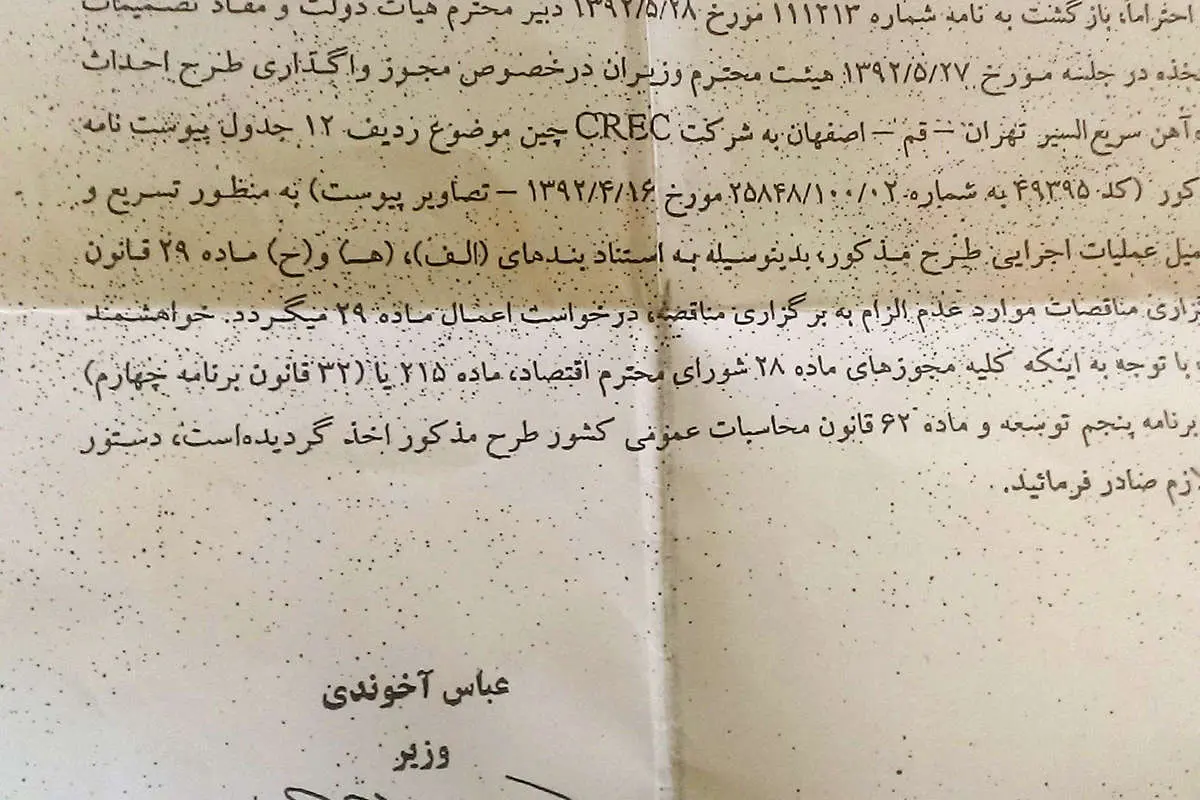 احتراماً، بازگشت به نامه شماره ۱۱۱۲۱۳ مورخ ۱۳۹۲/۵/۲۸ دبیر محترم هیات دولت و مفاد تصمیمات
در جلسه مورخ ۱۳۹۲/۵/۲۷ هیئت محترم وزیران درخصوص مجوز واگذاری طرح احداث
آهن سریع‌السیر تهران – قم – اصفهان به شرکت CREC چین موضوع ردیف ۱۲ جدول پیوست نامه
(کد ۴۹۳۹۵ به شماره ۲۵۸۴۸/۱۰۰/۰۲ مورخ ۱۳۹۲/۴/۱۶ – تصاویر پیوست) به منظور تسریع و
عملیات اجرایی طرح مذکور، بدینوسیله به استناد بندهای (الف)، (هـ) و(خ) ماده ۲۹ قانون
مناقصات موارد عدم الزام به برگزاری مناقصه، درخواست اعمال ماده ۲۹ میگردد. خواهشمند
با توجه به اینکه کلیه مجوزهای ماده ۲۸ شورای محترم اقتصاد، ماده ۲۱۵ یا (۳۲ قانون برنامه چهارم)
برنامه پنجم توسعه و ماده ۶۲ قانون محاسبات عمومی کشور طرح مذکور اخذ گردیده‌است، دستور
صادر فرمائید.
عباس آخوندی
وزیر